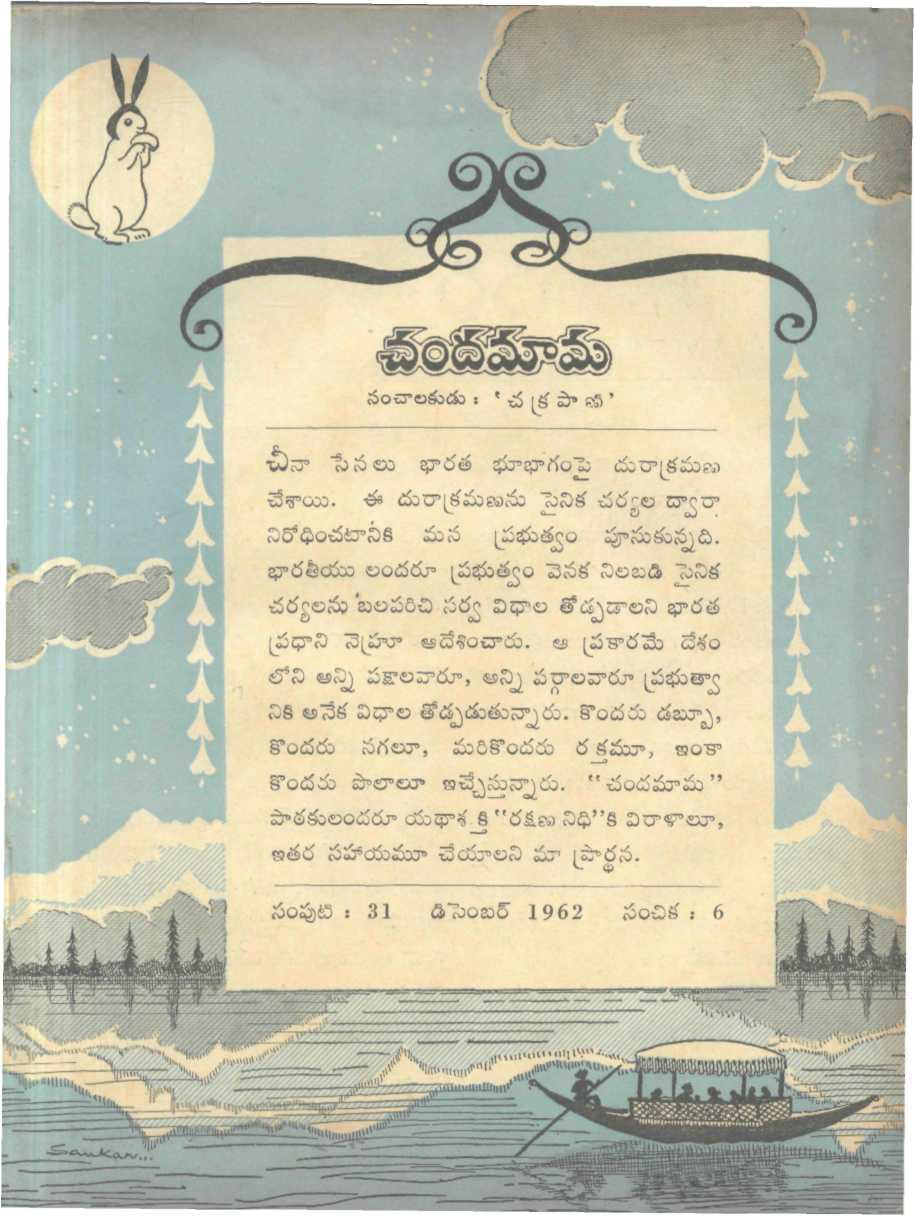 చందమామ
సంచాలకుడు : ‘చక్రపాణి’
చీనా సేనలు భారత భూభాగంపై దురాక్రమణ
చేశాయి. ఈ దురాక్రమణను సైనిక చర్యల ద్వారా
నిరోధించటానికి మన ప్రభుత్వం పూనుకున్నది.
భారతీయు లందరూ ప్రభుత్వం వెనక నిలబడి సైనిక
చర్యలను బలపరిచి సర్వ విధాల తోడ్పడాలని భారత
ప్రధాని నెహ్రూ ఆదేశించారు. ఆ ప్రకారమే దేశం
లోని అన్ని పక్షాలవారూ, అన్ని వర్గాలవారూ ప్రభుత్వా
నికి అనేక విధాల తోడ్పడుతున్నారు. కొందరు డబ్బూ,
కొందరు నగలూ, మరికొందరు రక్తమూ, ఇంకా
కొందరు పొలాలూ ఇచ్చేస్తున్నారు. “చందమామ”
పాఠకులందరూ యథాశక్తి “రక్షణ నిధి”కి విరాళాలూ,
ఇతర సహాయమూ చేయాలని మా ప్రార్థన.
సంపుటి : 31 డిసెంబర్ 1962 సంచిక : 6
Sankar...